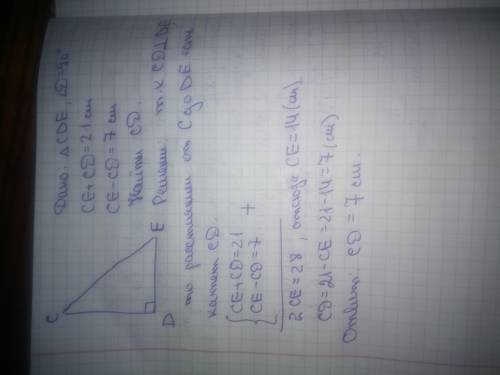 Дано: △ CDE, ∠D=90°
CE+CD=21 см
CE-CD=7 см
Найти CD.
Решение: т.к CD⊥DE
то расстоянием от C до DE
катет CD.
{CE+CD=21
{CE-CD=7 +
2CE=28, отсюда CE=14(см)
CD=21-CE=21-14=7(см)
Ответ: CD=7 см.
C
E
D